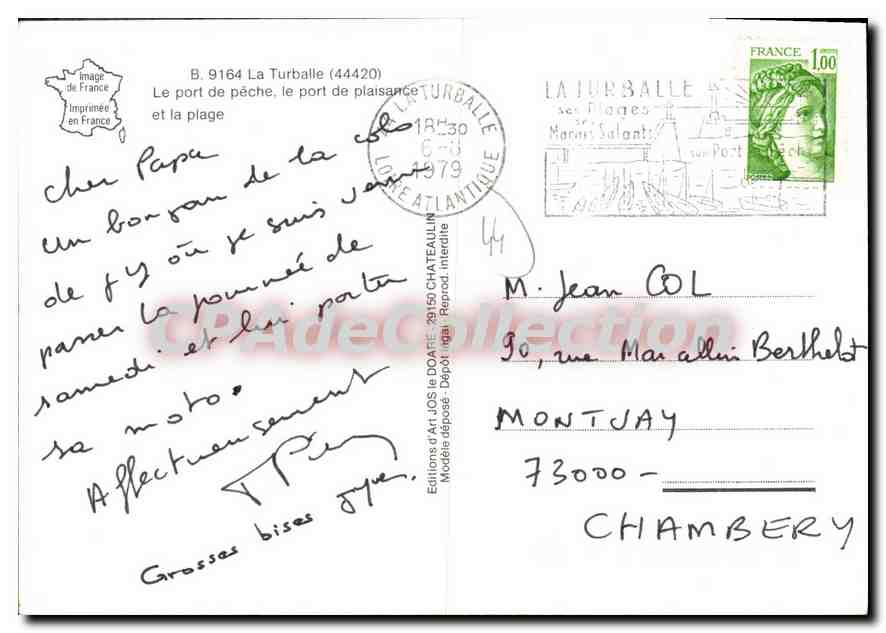 Image
de France
Imprimée
en France
B. 9164 La Turballe (44420)
Le port de pêche, le port de plaisance
et la plage
cher Papa
un bonjour de la colo
de J y où je suis venue
passer la journée de
samedi et lui porter
sa moto.
Affectueusement
Grosses bises
Editions d'Art JOS le DOARE - 29150 CHATEAULIN
Modèle déposé - Dépôt légal - Reprod. interdite
LA TURBALLE
18H30
6-8
1979
LOIRE ATLANTIQUE
LA TURBALLE
ses Plages
ses
Marais Salants
son Port
FRANCE 1,00
POSTES
44
M. Jean COL
90, rue Marcellin Berthelot
MONTJAY
73000 -
CHAMBERY
CPAdeCollection